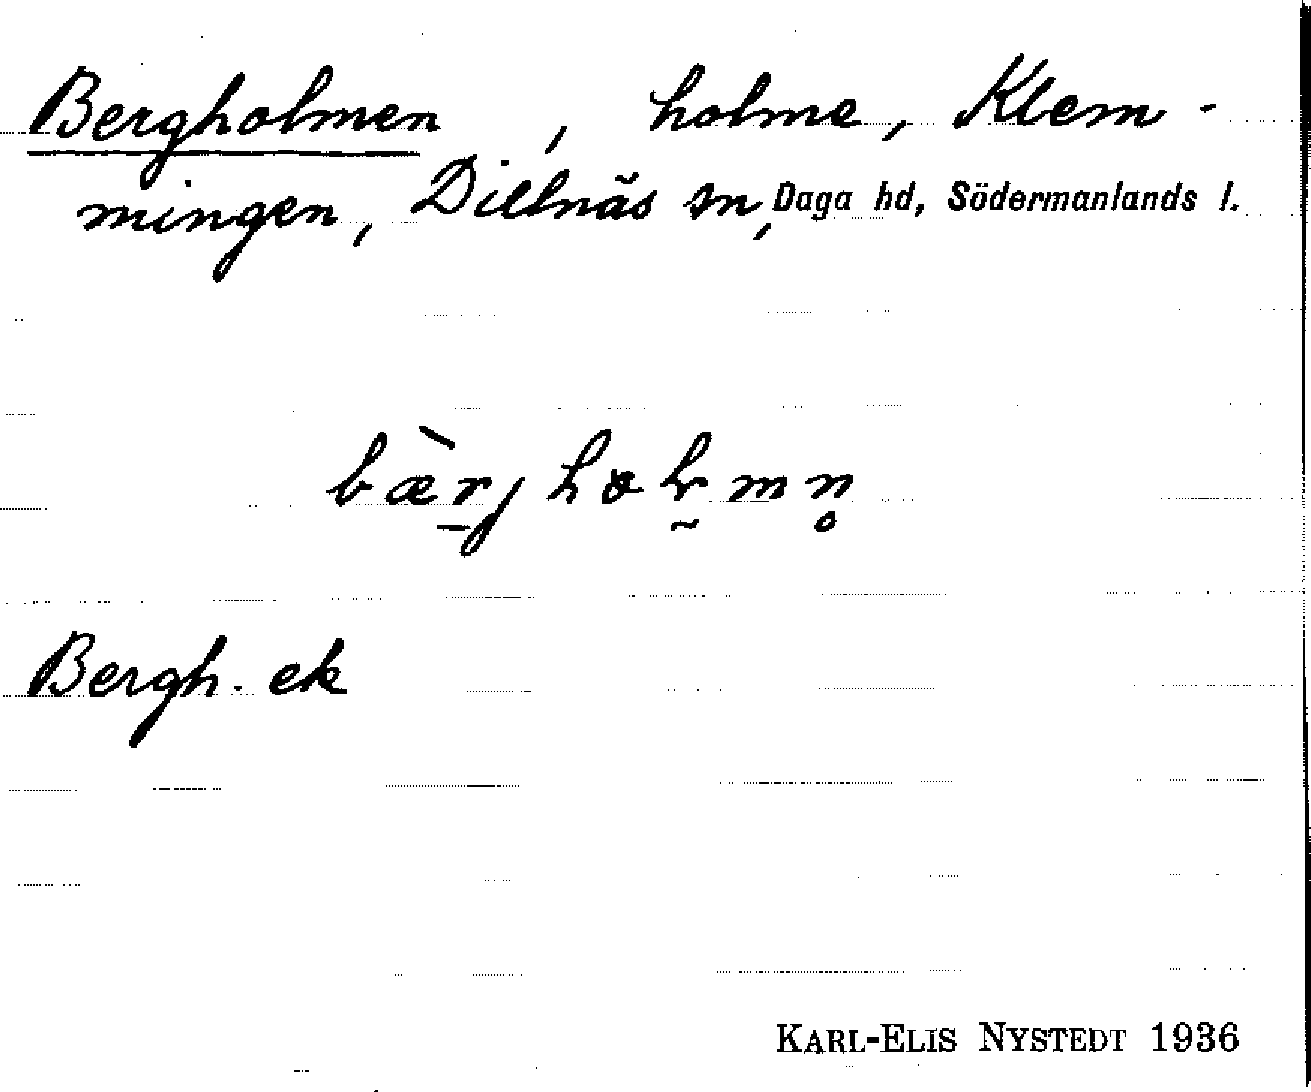 Bergholmen, holme, Klem-
mingen, Dillnäs sn, Daga hd, Södermanlands l.
Bergh. ek
KARL-ELIS NYSTEDT 1936